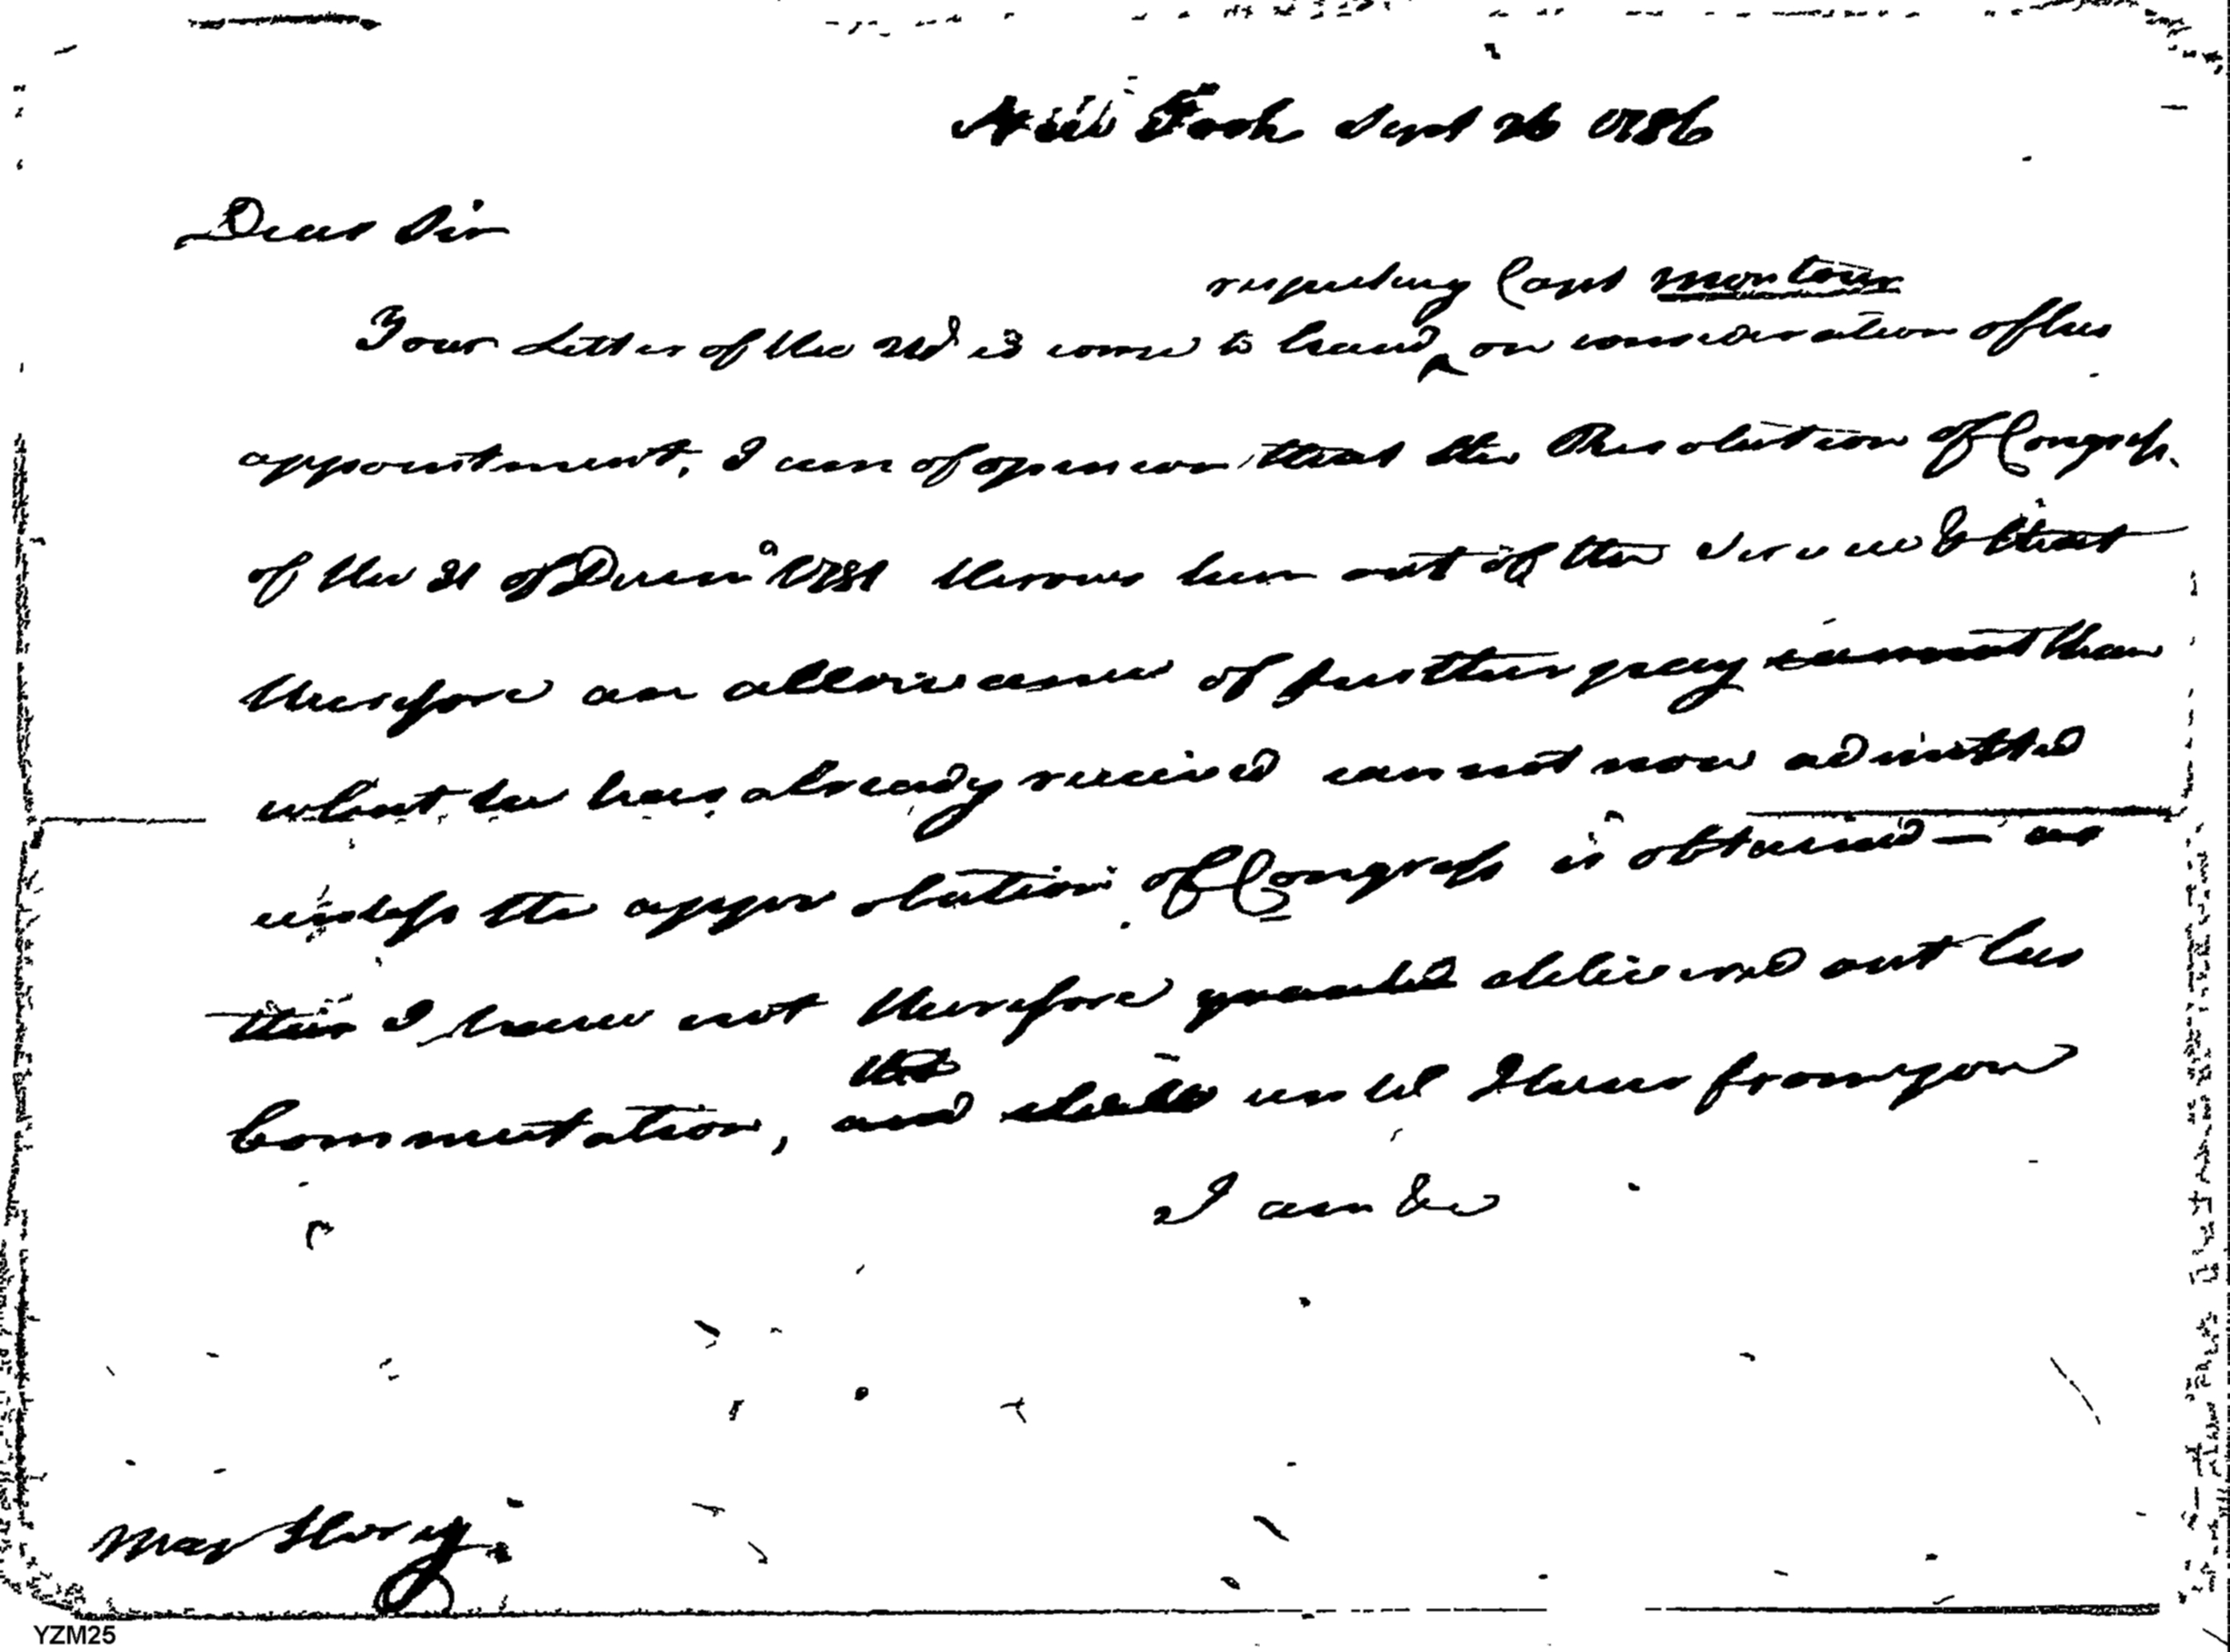 New York Sept 26 1786
Dear Sir
respecting Capt Montour
Your Letter of the 22d is come to hand ^ on consideration of his
appointment, I am of opinion that the Resolution of Congress
of the 31 of Decem 1781 throws him out of the service & that
therefore an allowance of further pay cannot than
what he has already received cannot now admitted
unless the approbation of Congress is obtained — as
this I have not therefore granted delivered out his
Commutation, and until I hear from you
I am &c